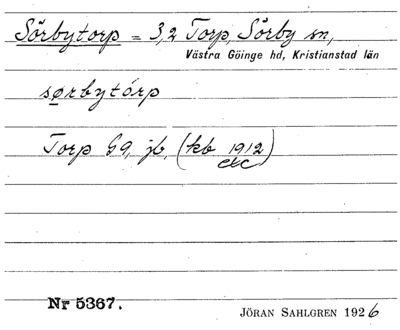 Sörbytorp = 3,2 Torp, Sörby sn,
Västra Göinge hd, Kristianstad län
sørbytórp
Torp G9, jb, (kb 1912)
etc
Nr 5367.
JÖRAN SAHLGREN 1926